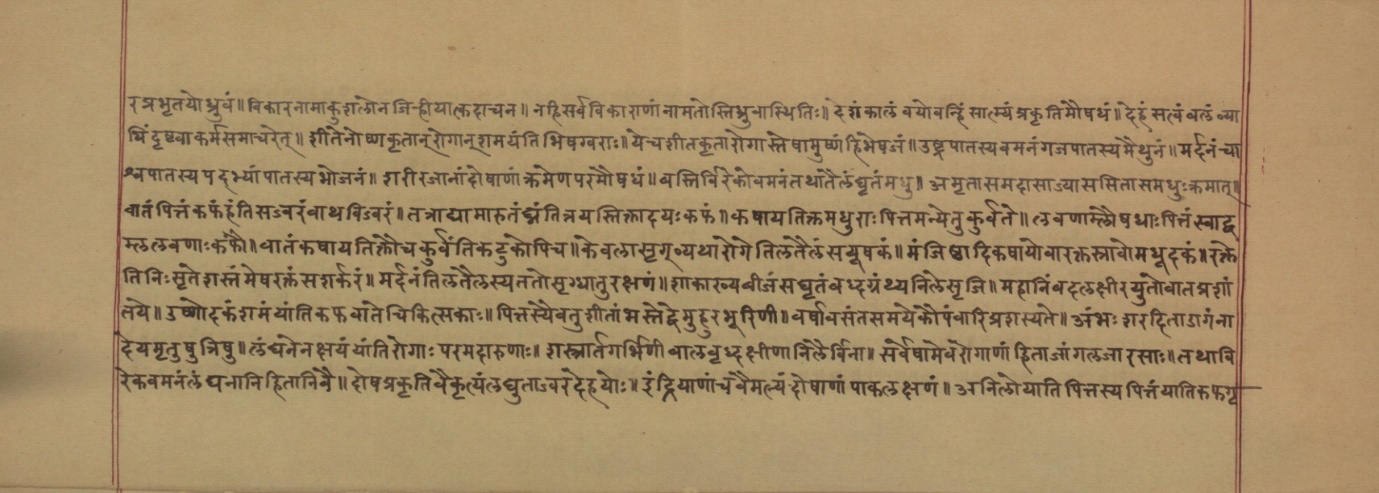 रप्रभृतयोध्रुवं॥विकारनामाकुशलोनजिन्हीयात्कदाचन॥नहिसर्वविकाराणांनामतोस्तिध्रुवास्थितिः॥देशंकालंवयोवन्हिंसात्म्यंप्रकृतिमौषधं॥देहंसत्वंबलंव्या
धिंदृष्ट्वाकर्मसमाचरेत्॥शीतेनोष्णकृतान्रोगान्शमयंतिभिषग्वराः॥येचशीतकृतारोगास्तेषामुष्णंहिभेषजं॥उष्ट्रपातस्यवमनंगजपातस्यमैथुनं॥मर्दनंचा
श्वपातस्यपद्भ्यांपातस्यभोजनं॥शरीरजानांदोषाणांक्रमेणपरमौषधं॥वस्तिर्विरेकोवमनंतथातैलंघृतंमधु॥अमृतासमदासाज्याससितासमधुःक्रमात्॥
वातंपित्तंकफंहंतिसज्वरंवाथविज्वरं॥तत्राद्यामारुतंघ्नंतित्रयस्तिक्तादयःकफं॥कषायतिक्तमधुराःपित्तमन्येतुकुर्वते॥लवणाम्लौषधाःपित्तंस्वाद्व
म्ललवणाःकफौ॥वातंकषायतिक्तौचकुर्वंतिकटुकोपिच॥केवलासृग्व्यथारोगेतिलतैलंसयूषकं॥मंजिष्ठादिकषायोवारक्तस्रावोमधूदकं॥रक्ते
तिनिःसृतेशस्तंमेषरक्तंसशर्करं॥मर्दनंतिलतैलस्यततोसृग्धातुरक्षणं॥शाकाख्यबीजंसघृतंवध्दग्रंथ्यनिलेसृजि॥महानिंबदलक्षीरयुतोवातप्रशां
तये॥उष्णोदकंशमंयांतिकफवातेचिकित्सकाः॥पित्तस्यैवतुशीतांभस्तेद्वेमुहुरभूरिणी॥वर्षावसंतसमयेकौपंवारिप्रशस्यते॥अंभःशरदिताडागंना
देयमृतुषुत्रिषु॥लंघनेनक्षयंयांतिरोगाःपरमदारुणाः॥शस्त्रार्तगर्भिणीबालवृध्दक्षीणानिलैर्विना॥सर्वेषामेवरोगाणांहिताजांगलजारसाः॥तथावि
रेकवमनंलंघनानिहितानिनै॥दोषप्रकृतिवैकृत्यंलघुताज्वरदेहयोः॥इंद्रियाणांचवैमल्यंदोषाणांपाकलक्षणं॥अनिलोयातिपित्तस्यपित्तंयातिकफगृ